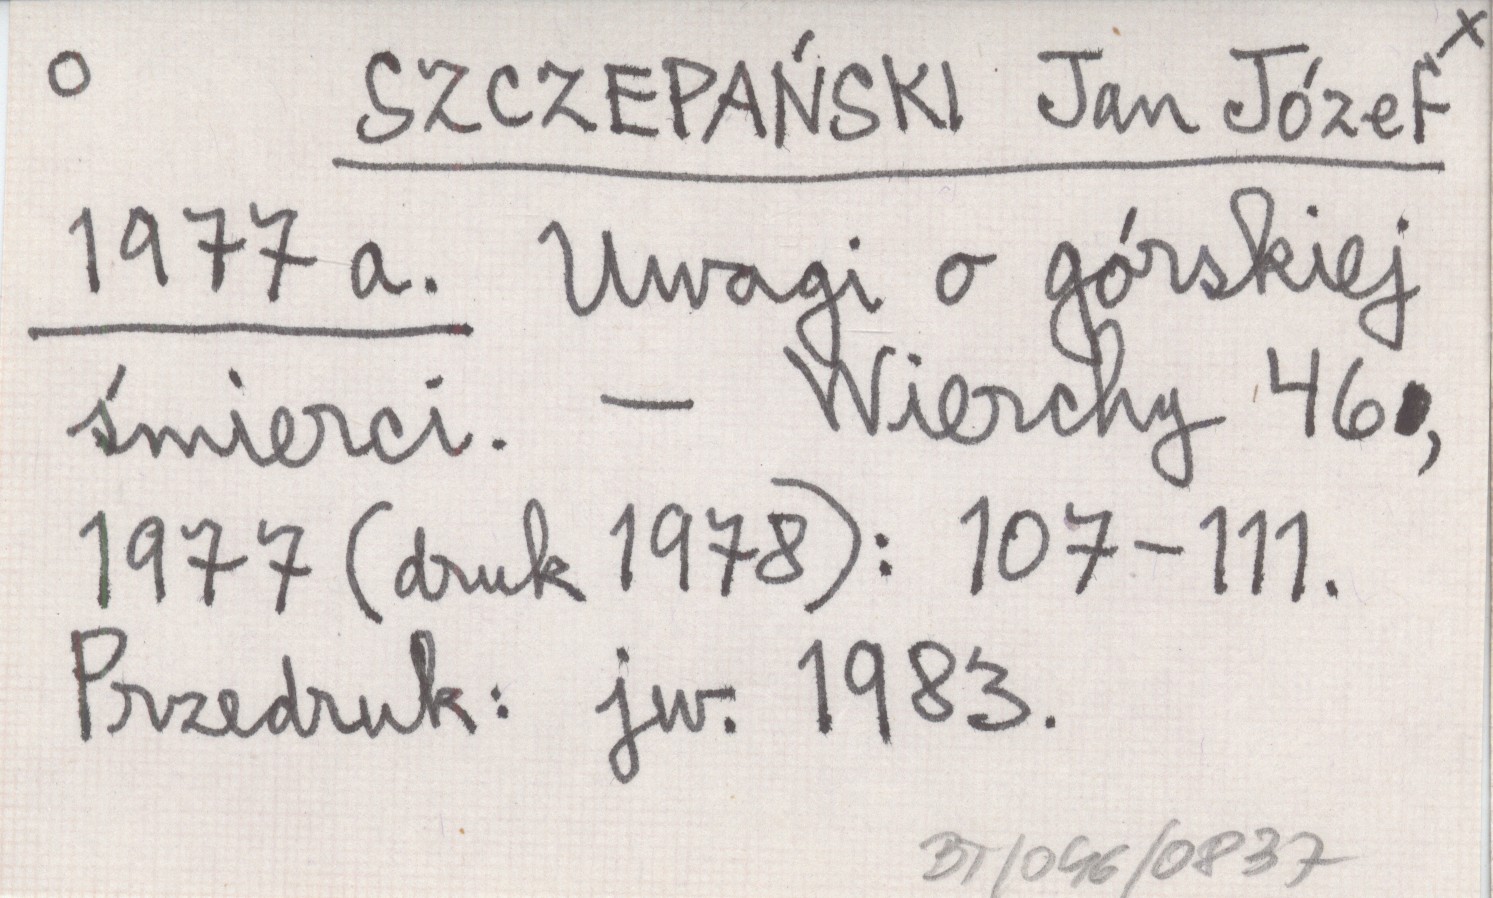 o SZCZEPAŃSKI Jan Józef x
1977a. Uwagi o górskiej
śmierci. — Wierchy 46,
1977 (druk 1978): 107-111.
Przedruk: jw. 1983.
BT/046/0837